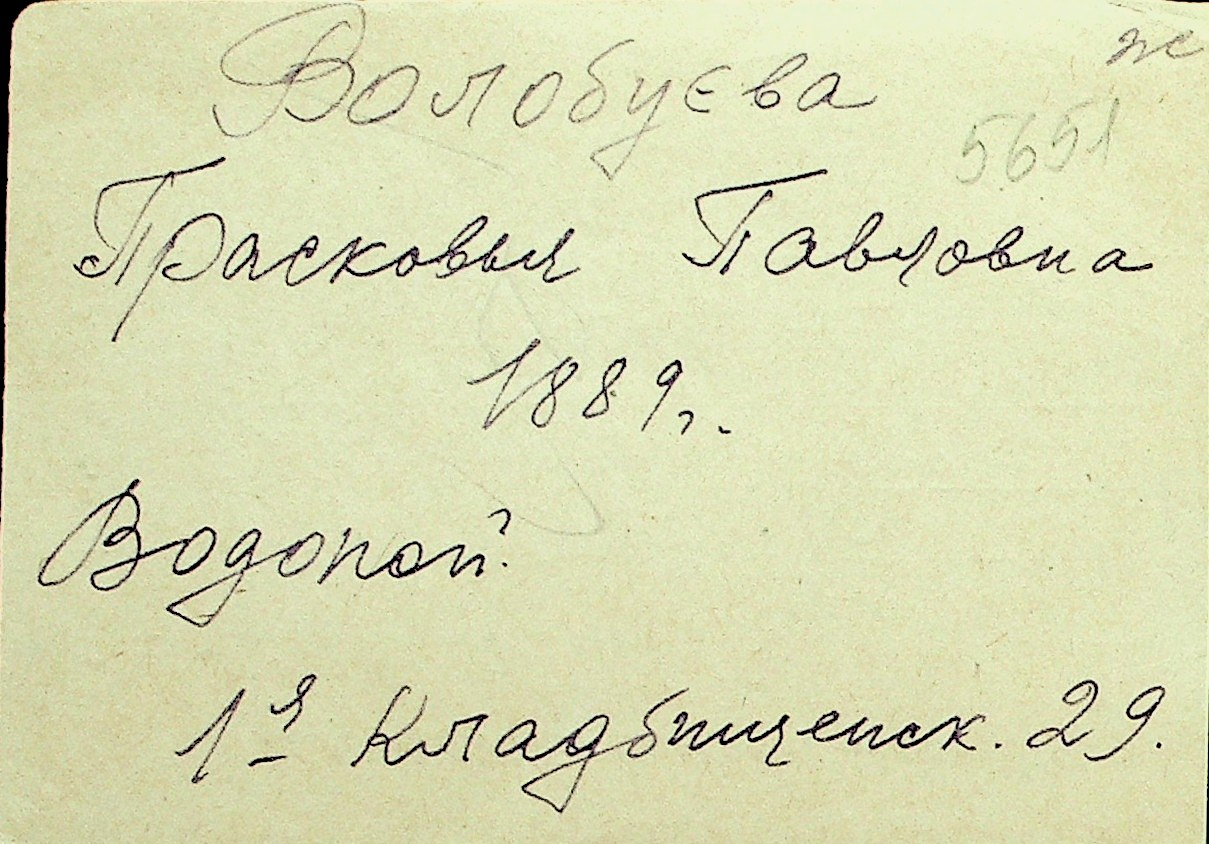 ж
Волобуєва
5651
Прасковья Павловна
1889г.
Водопой.
1я Кладбищенск. 29.